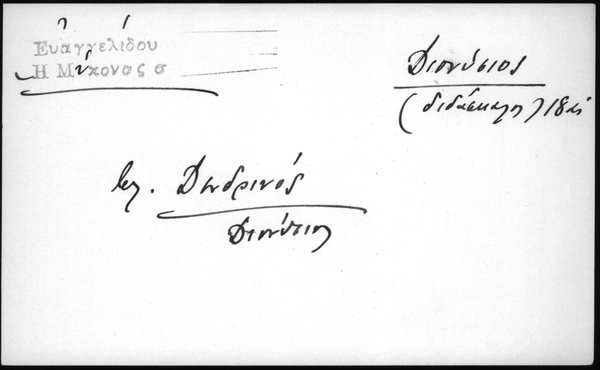 Εὐαγγελίδου
Ἡ Μύκονος σ
Διονύσιος
(διδάσκαλος) 18
βλ. Δωδρινός
Διονύσιος